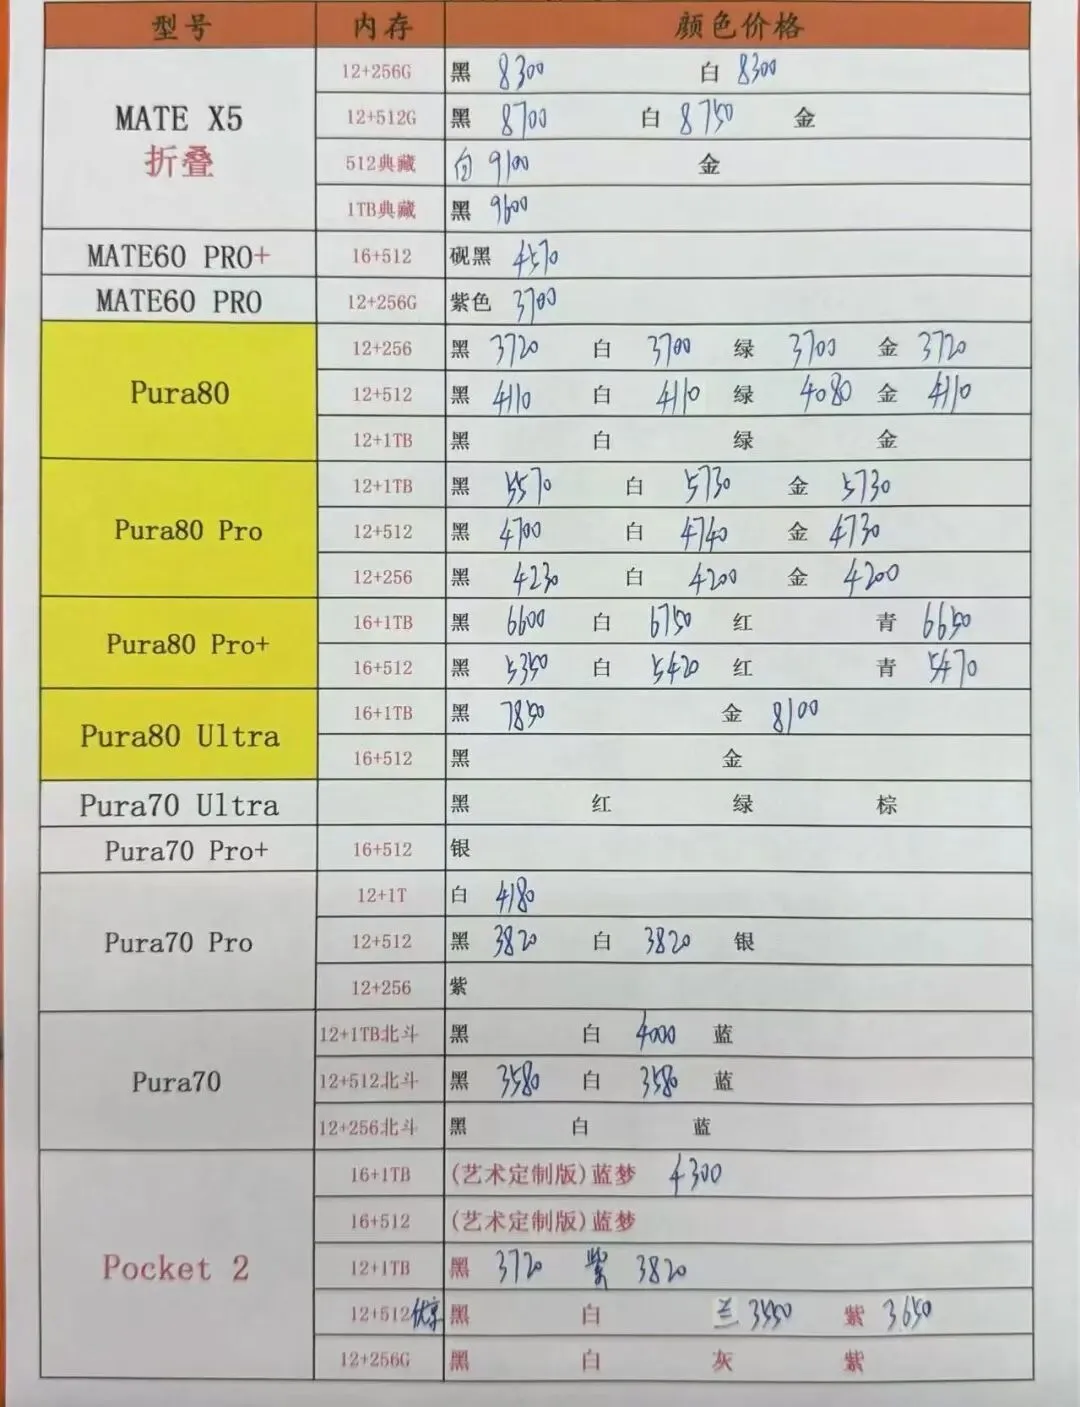 型号 内存 颜色价格
MATE X5 折叠
12+256G 黑 8300 白 8300
12+512G 黑 8700 白 8750 金
512典藏 白 9100 金
1TB典藏 黑 9600
MATE60 PRO+ 16+512 砚黑 4570
MATE60 PRO 12+256G 紫色 3700
Pura80
12+256 黑 3720 白 3700 绿 3700 金 3720
12+512 黑 4110 白 4110 绿 4080 金 4110
12+1TB 黑 白 绿 金
Pura80 Pro
12+1TB 黑 5570 白 5730 金 5730
12+512 黑 4700 白 4740 金 4730
12+256 黑 4230 白 4200 金 4200
Pura80 Pro+
16+1TB 黑 6600 白 6750 红 青 6650
16+512 黑 5350 白 5420 红 青 5470
Pura80 Ultra
16+1TB 黑 7850 金 8100
16+512 黑 金
Pura70 Ultra 黑 红 绿 棕
Pura70 Pro+ 16+512 银
Pura70 Pro
12+1T 白 4180
12+512 黑 3820 白 3820 银
12+256 紫
Pura70
12+1TB北斗 黑 白 4000 蓝
12+512北斗 黑 3580 白 3580 蓝
12+256北斗 黑 白 蓝
Pocket 2
16+1TB (艺术定制版)蓝梦 4300
16+512 (艺术定制版)蓝梦
12+1TB 黑 3720 紫 3820
12+512优享 黑 白 兰 3550 紫 3650
12+256G 黑 白 灰 紫